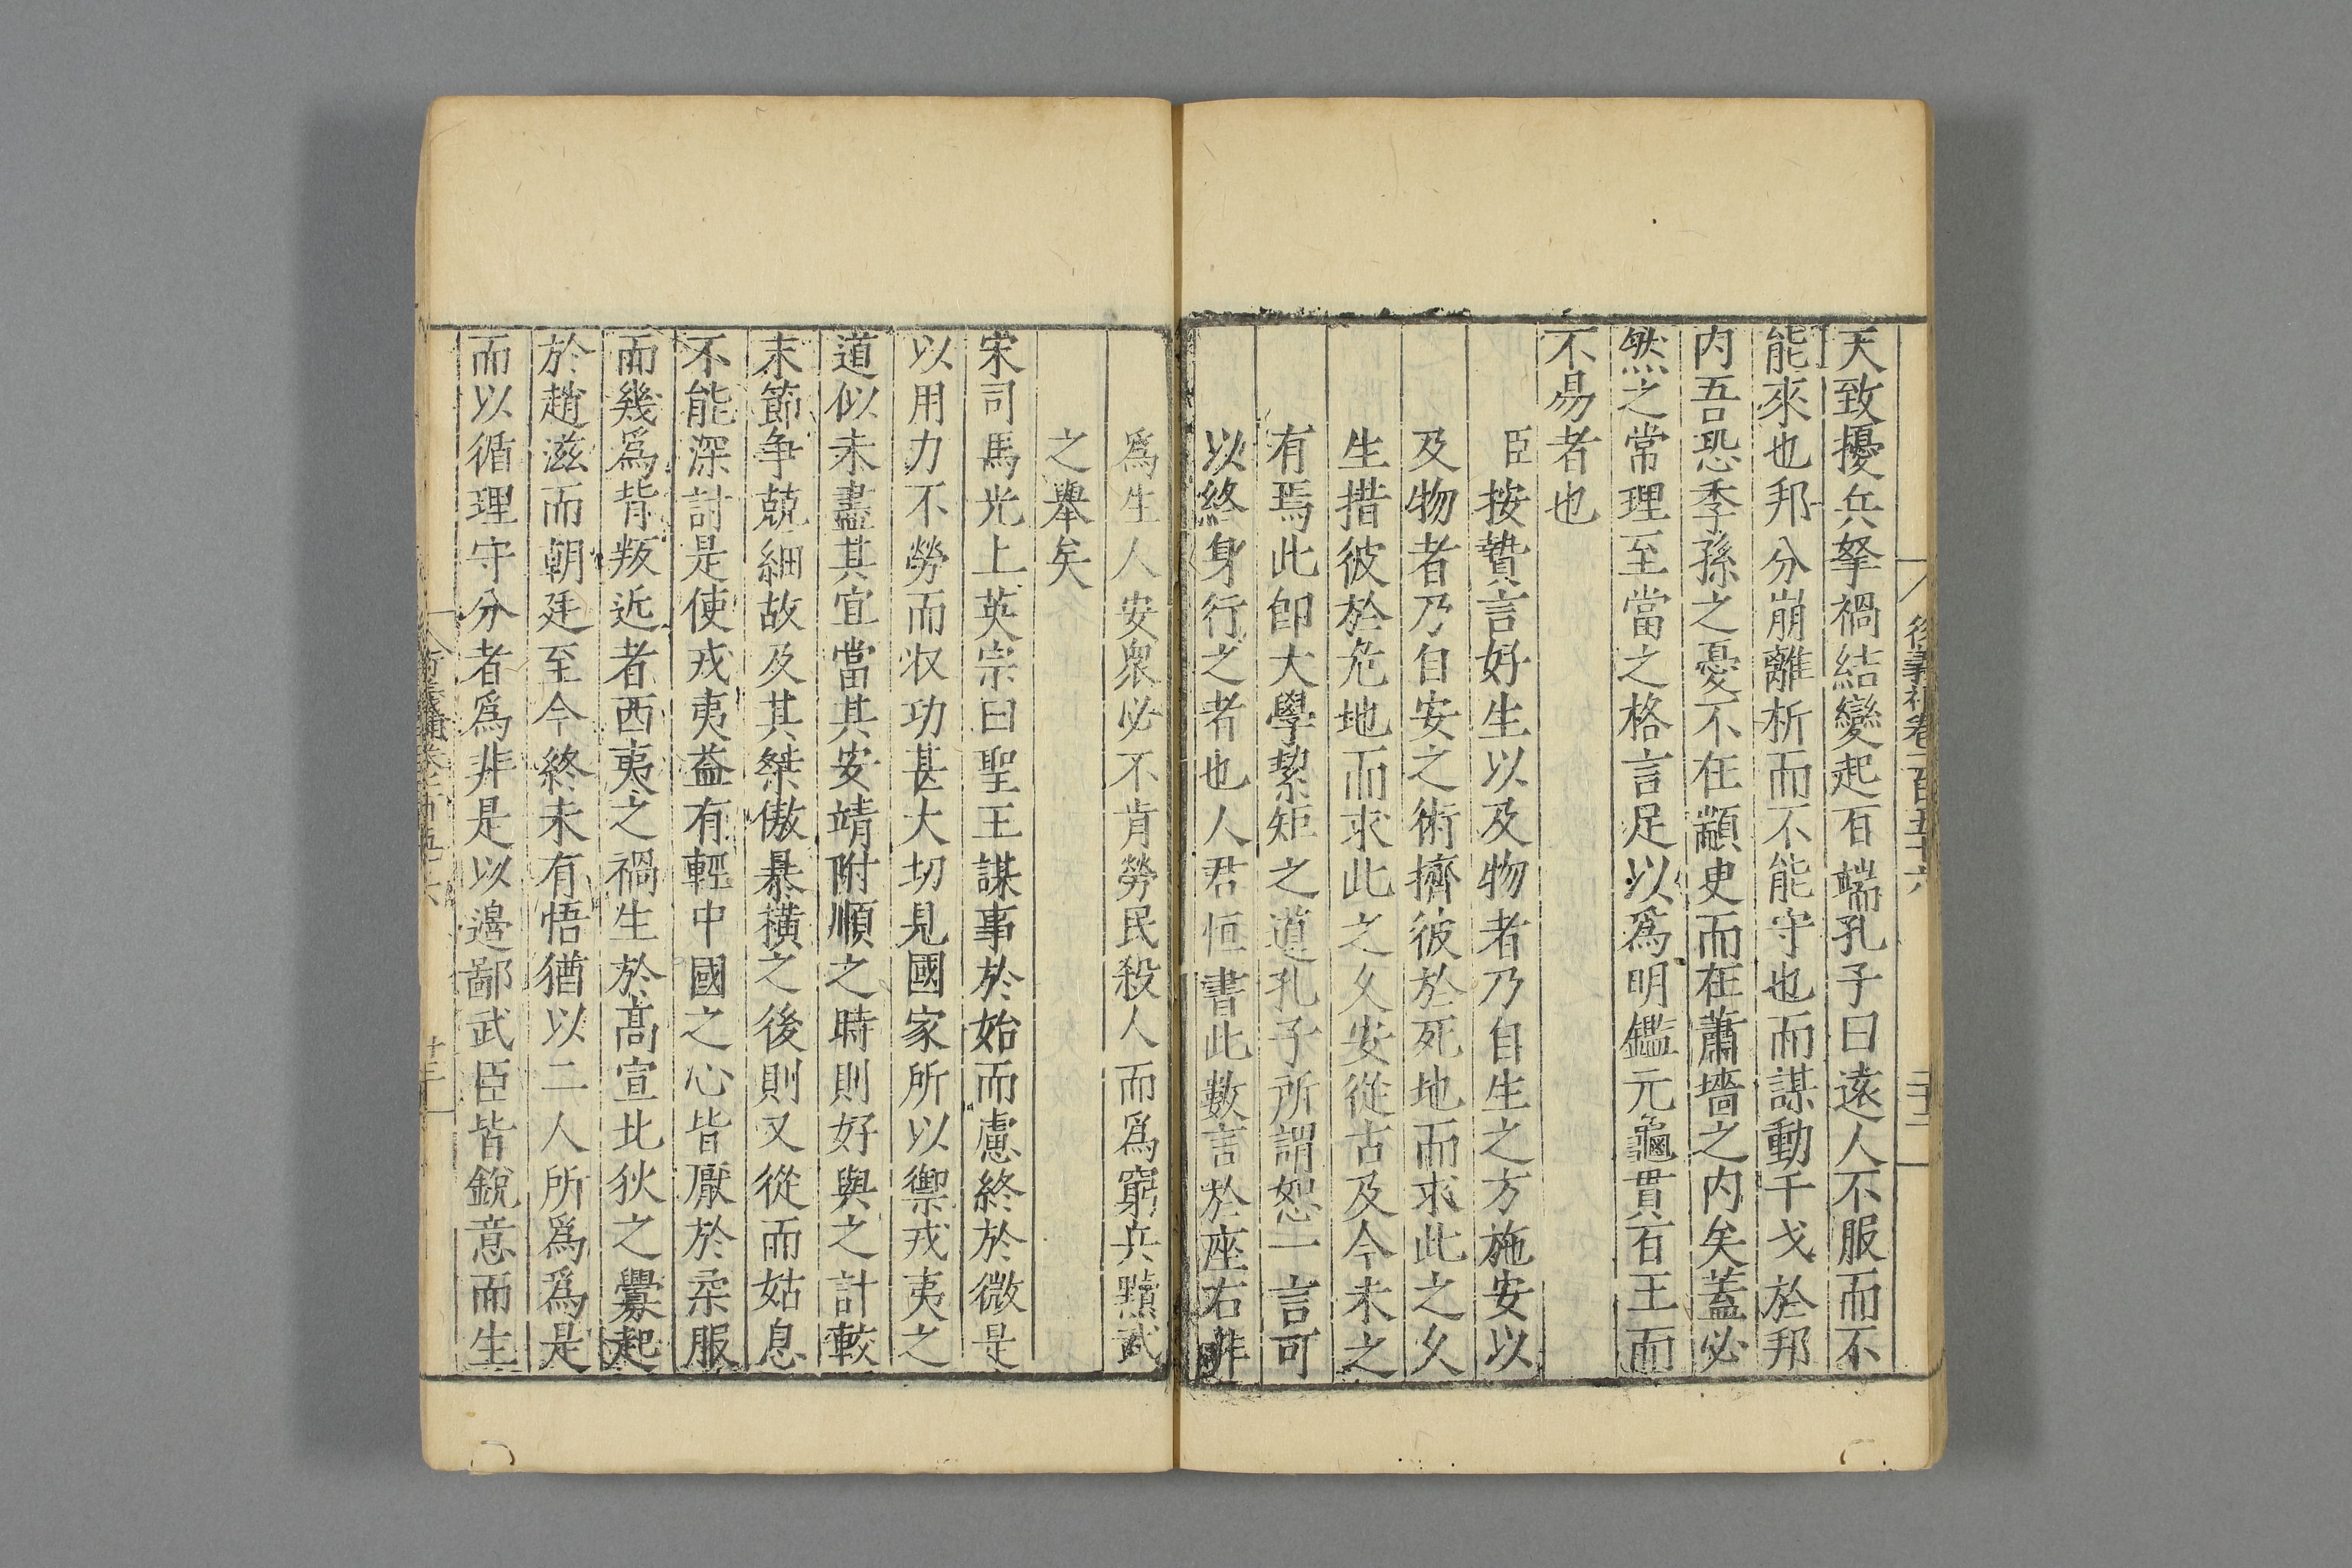 衍義補卷一百五十六
二十二
天致擾兵拏禍結變起百端孔子曰遠人不服而不
能來也邦分崩離析而不能守也而謀動干戈於邦
内吾恐季孫之憂不在顓臾而在蕭墻之内矣蓋必
然之常理至當之格言足以爲明鑑元龜貫百王而
不易者也
臣按贄言好生以及物者乃自生之方施安以
及物者乃自安之術擠彼於死地而求此之久
生措彼於危地而求此之久安從古及今未之
有焉此卽大學絜矩之道孔子所謂恕一言可
以終身行之者也人君恒書此數言於座右非
爲生人安衆必不肯勞民殺人而爲窮兵黷武
之舉矣
宋司馬光上英宗曰聖王謀事於始而慮終於微是
以用力不勞而收功甚大切見國家所以禦戎夷之
道似未盡其宜當其安靖附順之時則好與之計較
末節争競細故及其桀傲暴橫之後則又從而姑息
不能深討是使戎夷益有輕中國之心皆厭於柔服
而幾爲背叛近者西夷之禍生於髙宣北狄之釁起
於趙滋而朝廷至今終未有悟猶以二人所爲爲是
而以循理守分者爲非是以邉鄙武臣皆銳意而生